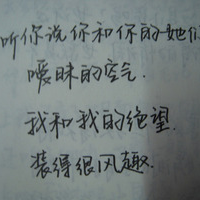 听你说你和你的她们
暧昧的空气.
我和我的绝望.
装得很风趣.